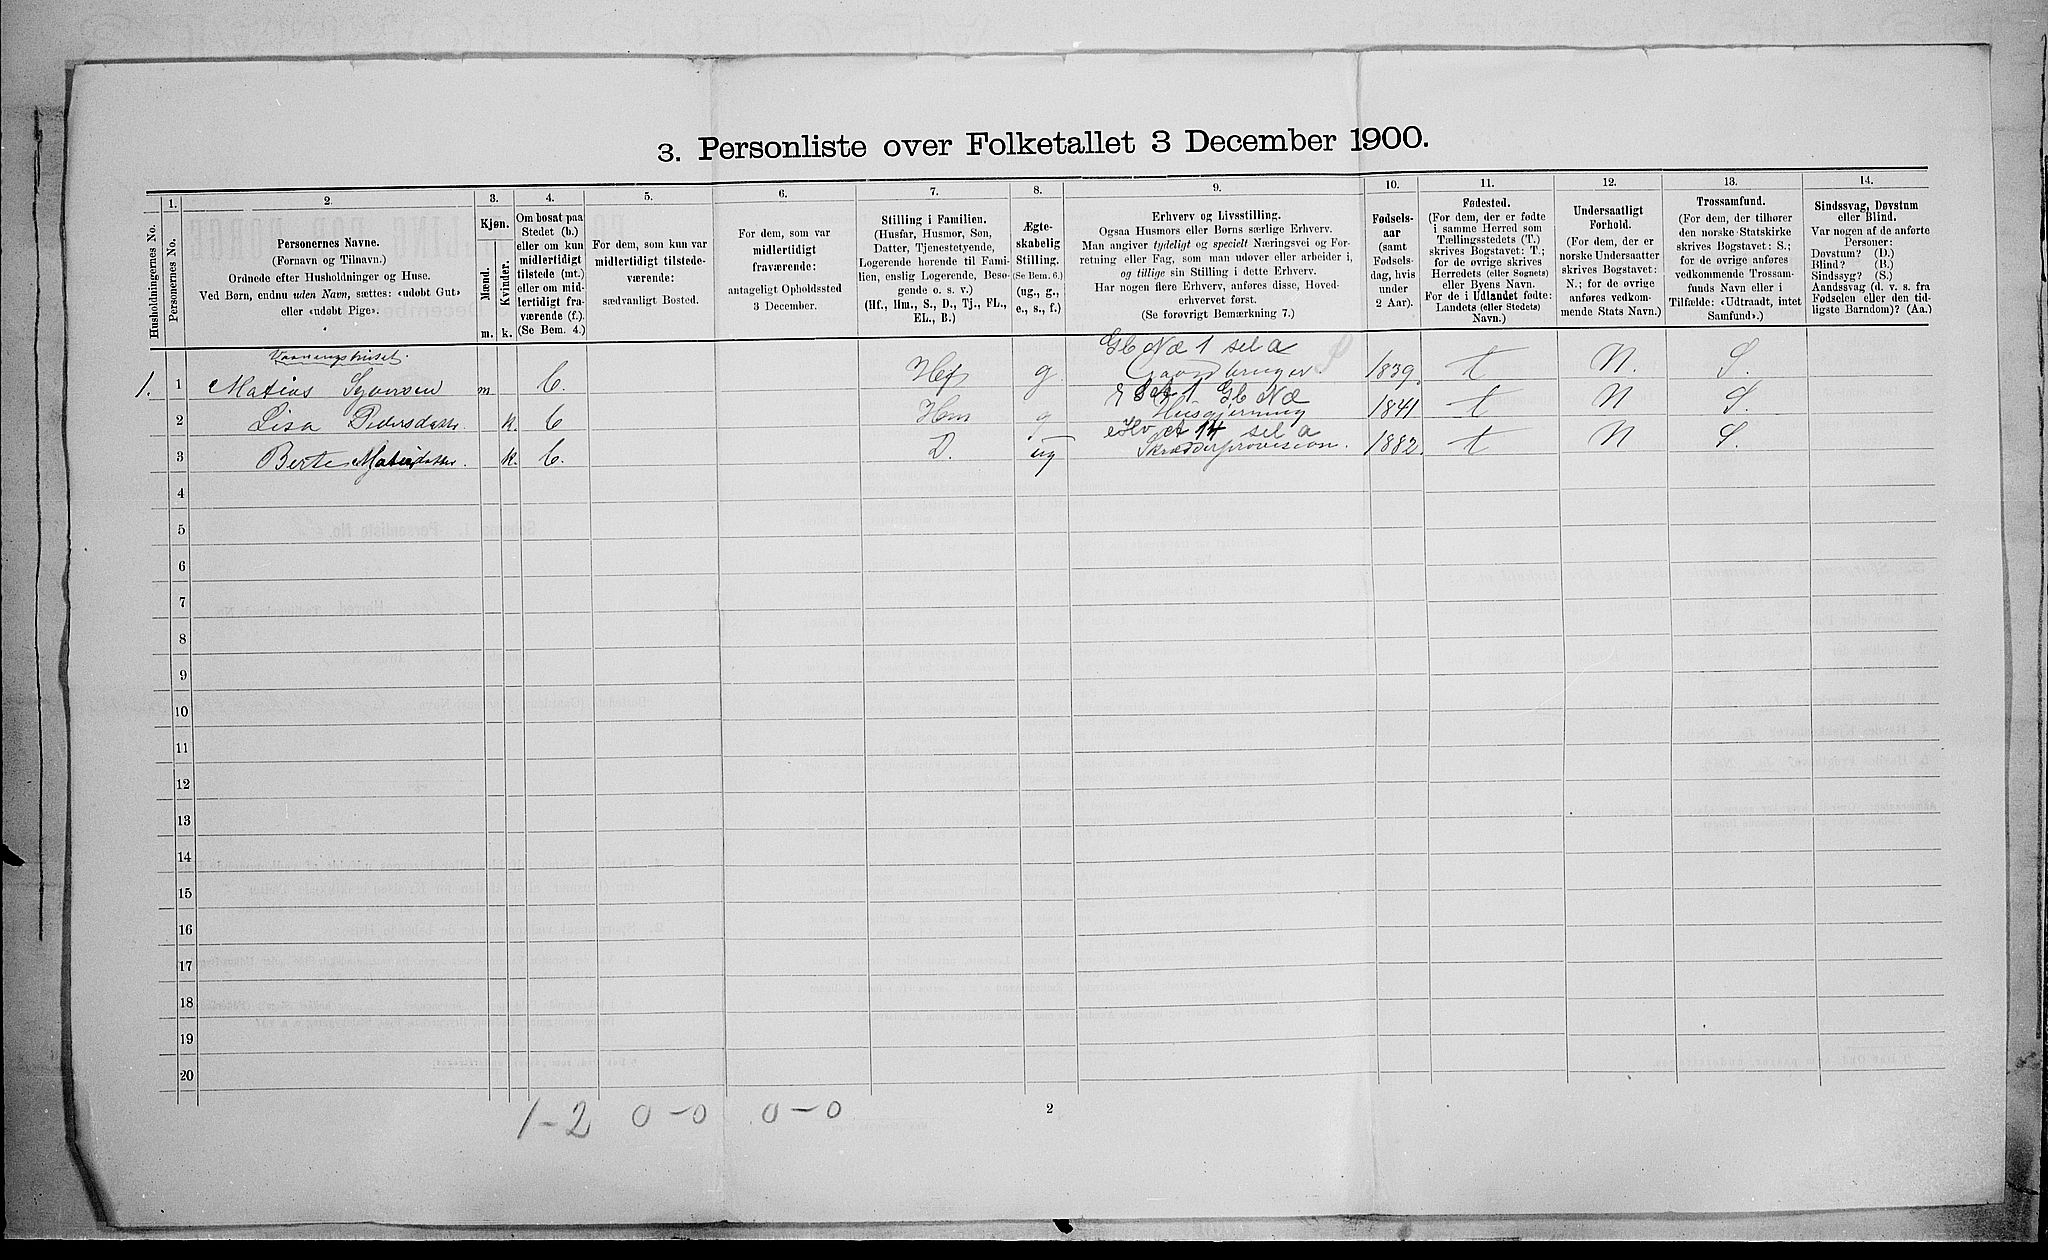 3. Personliste over Folketallet 3 December 1900.
Husholdningernes No.
1. Personernes No.
2. Personernes Navne.
(Fornavn og Tilnavn.)
Ordnede efter Husholdninger og Huse.
Ved Børn, endnu uden Navn, sættes: «udøbt Gut»
eller «udøbt Pige».
3. Kjøn.
Mænd. m.
Kvinder. k.
4. Om bosat paa
Stedet (b.)
eller om kun
midlertidigt
tilstede (mt.)
eller om mid-
lertidigt fra-
værende (f.).
(Se Bem. 4.)
5. For dem, som kun var
midlertidigt tilstede-
værende:
sædvanligt Bosted.
6. For dem, som var
midlertidigt
fraværende:
antageligt Opholdssted
3 December.
7. Stilling i Familien.
(Husfar, Husmor, Søn,
Datter, Tjenestetyende,
Logerende hørende til Fami-
lien, enslig Logerende, Besø-
gende o. s. v.)
(Hf., Hm., S., D., Tj., FL.,
EL., B.)
8. Ægte-
skabelig
Stilling.
(Se Bem. 6.)
(ug., g.,
e., s., f.)
9. Erhverv og Livsstilling.
Ogsaa Husmors eller Børns særlige Erhverv.
Man angiver tydeligt og specielt Næringsvei og For-
retning eller Fag, som man udøver eller arbeider i,
og tillige sin Stilling i dette Erhverv.
Har nogen flere Erhverv, anføres disse, Hoved-
erhvervet først.
(Se forøvrigt Bemærkning 7.)
10. Fødsels-
aar
(samt
Fødsels-
dag, hvis
under
2 Aar).
11. Fødested.
(For dem, der er fødte
i samme Herred som
Tællingsstedets (T.)
skrives Bogstavet: T.;
for de øvrige skrives
Herredets (eller Sognets)
eller Byens Navn.
For de i Udlandet fødte:
Landets (eller Stedets)
Navn.)
12. Undersaatligt
Forhold.
(For dem, der er
norske Undersaatter
skrives Bogstavet:
N.; for de øvrige
anføres vedkom-
mende Stats Navn.)
13. Trossamfund.
(For dem, der tilhører
den norske Statskirke
skrives Bogstavet: S.;
for de øvrige anføres
vedkommende Trossam-
funds Navn eller i
Tilfælde: «Udtraadt, intet
Samfund».)
14. Sindssvag, Døvstum
eller Blind.
Var nogen af de anførte
Personer:
Døvstum? (D.)
Blind? (B.)
Sindssyg? (S.)
Aandssvag (d. v. s. fra
Fødselen eller den tid-
ligste Barndom)? (Aa.)
Vaaningshuset.
Gb Næ 1 sel a
1. 1 Matias Syversen m b. Hf g. Gaardbruger. 1839. t N. S.
Gb Næ
2 Lisa Pedersdatter. k. b Hm g Husgjerning 1841 t N S.
14 sel a
3 Berte Matiasdatter. k. b. D. ug 1882. t N S.
4
5
6
7
8
9
10
11
12
13
14
15
16
17
18
19
20
1-2 0-0 0-0
2